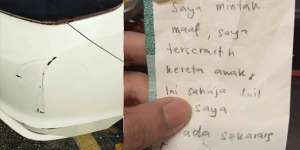 Saya mintak
maaf, saya
terscratch
kereta awak,
Ini sahaja duit
saya
ada sekarang